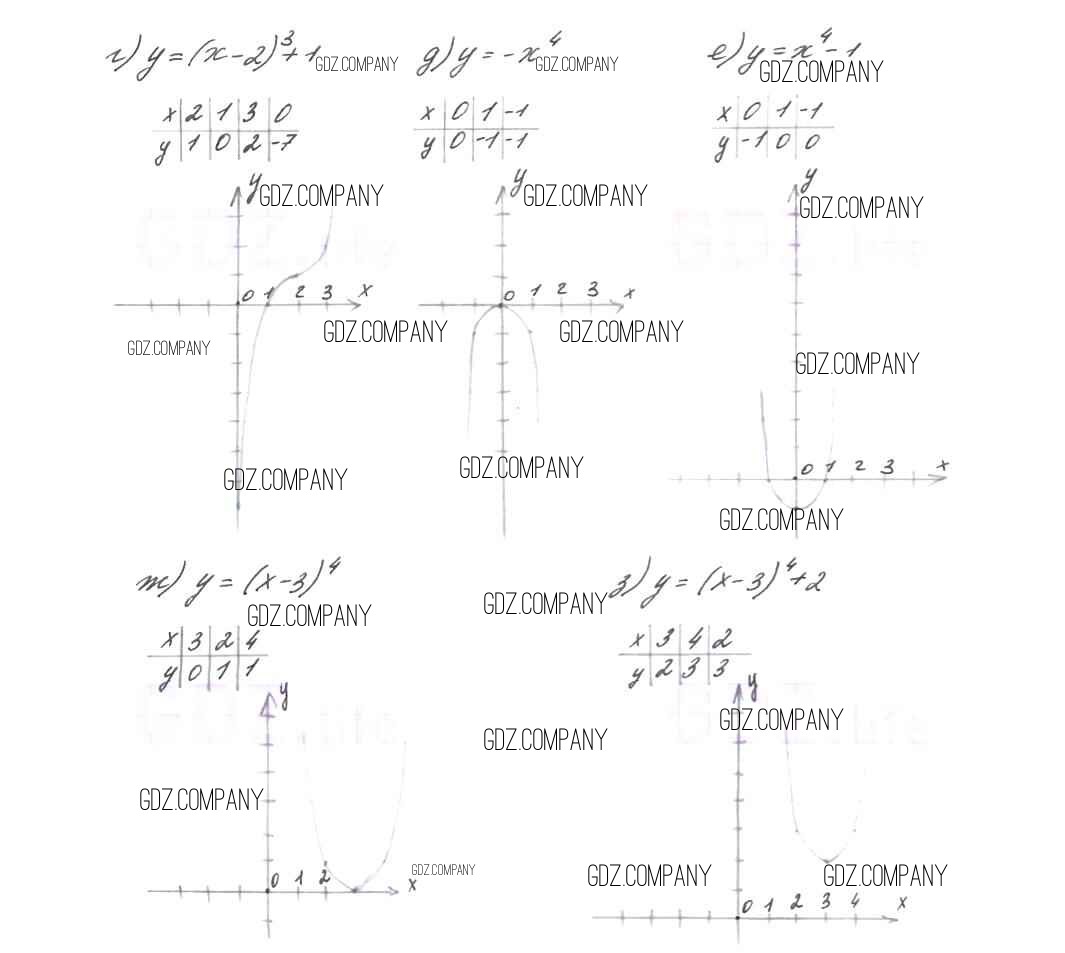 г) y = (x-2)³+1 GDZ.COMPANY д) y = -x⁴ GDZ.COMPANY е) y = x⁴-1
GDZ.COMPANY
x 2 1 3 0 x 0 1 -1 x 0 1 -1
y 1 0 2 -7 y 0 -1 -1 y -1 0 0
y GDZ.COMPANY y GDZ.COMPANY y
GDZ.COMPANY
GDZ.life GDZ.life
0 1 2 3 x 0 1 2 3 x
GDZ.COMPANY GDZ.COMPANY
GDZ.COMPANY
GDZ.COMPANY
GDZ.COMPANY GDZ.COMPANY 0 1 2 3 x
GDZ.COMPANY
ж) y = (x-3)⁴ з) y = (x-3)⁴+2
GDZ.COMPANY GDZ.COMPANY
x 3 2 4 x 3 4 2
y 0 1 1 y 2 3 3
y y
GDZ.COMPANY
GDZ.life GDZ.life
GDZ.COMPANY
GDZ.COMPANY
GDZ.COMPANY GDZ.COMPANY GDZ.COMPANY
0 1 2 x
0 1 2 3 4 x